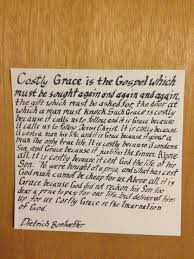 Costly Grace is the Gospel which
must be sought again and again and again,
the gift which must be asked for, the door at
which a man must knock. Such Grace is costly
because it calls us to follow, and it is Grace because
it calls us to follow Jesus Christ. It is costly because
it costs a man his life, and it is Grace because it gives a
man the only true life. It is costly because it condemns
Sin, and Grace because it justifies the Sinner. Above
all, it is costly because it cost God the life of his
Son: "Ye were bought at a price", and what has cost
God much cannot be cheap for us. Above all, it is
Grace because God did not reckon his Son too
dear a price to pay for our life, but delivered him
up for us. Costly Grace is the Incarnation
of God.
Dietrich Bonhoeffer